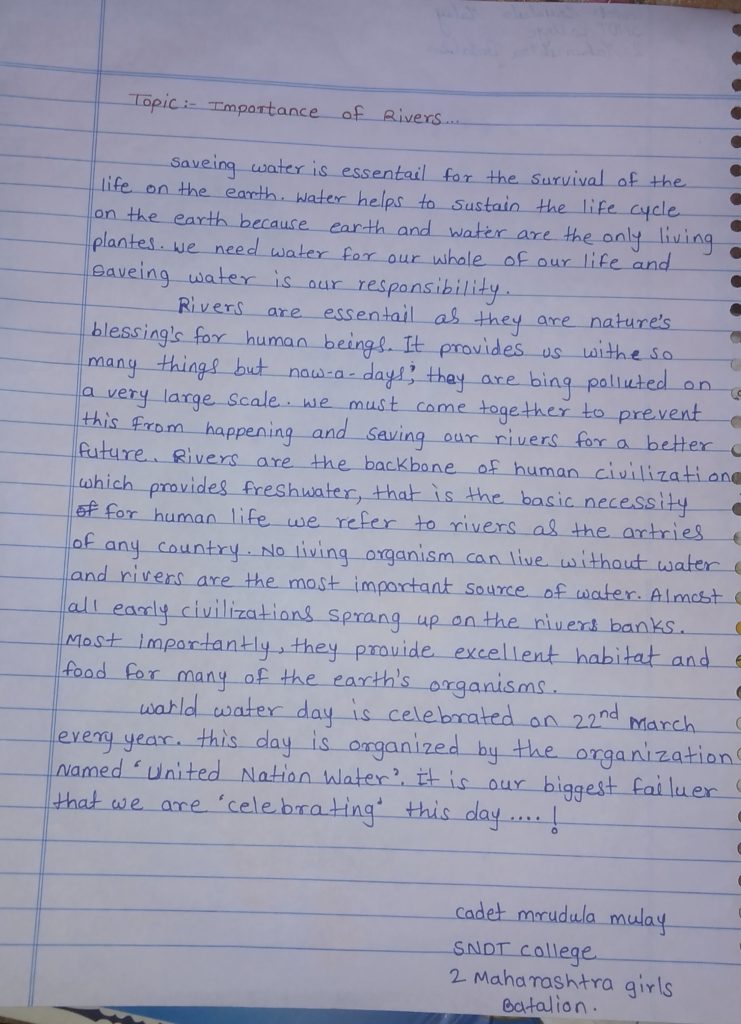 Topic:- Importance of Rivers...
saveing water is essentail for the survival of the
life on the earth. water helps to sustain the life cycle
on the earth because earth and water are the only living
plantes. we need water for our whole of our life and
saveing water is our responsibility.
Rivers are essentail as they are nature's
blessing's for human beings. It provides us withe so
many things but now-a-days; they are bing polluted on
a very large scale. we must come together to prevent
this from happening and saving our rivers for a better
future. Rivers are the backbone of human civilization
which provides freshwater, that is the basic necessity
of for human life we refer to rivers as the artries
of any country. No living organism can live without water
and rivers are the most important source of water. Almost
all early civilizations sprang up on the rivers banks.
Most importantly, they provide excellent habitat and
food for many of the earth's organisms.
warld water day is celebrated on 22nd march
every year. this day is organized by the organization
named 'United Nation Water'. it is our biggest failuer
that we are 'celebrating' this day....!
cadet mrudula mulay
SNDT college
2 Maharashtra girls
Batalion.